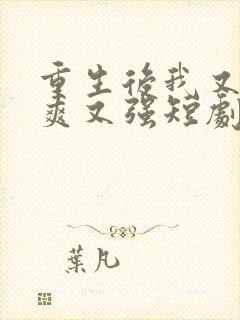 重生後我又
爽又强短劇
葉凡